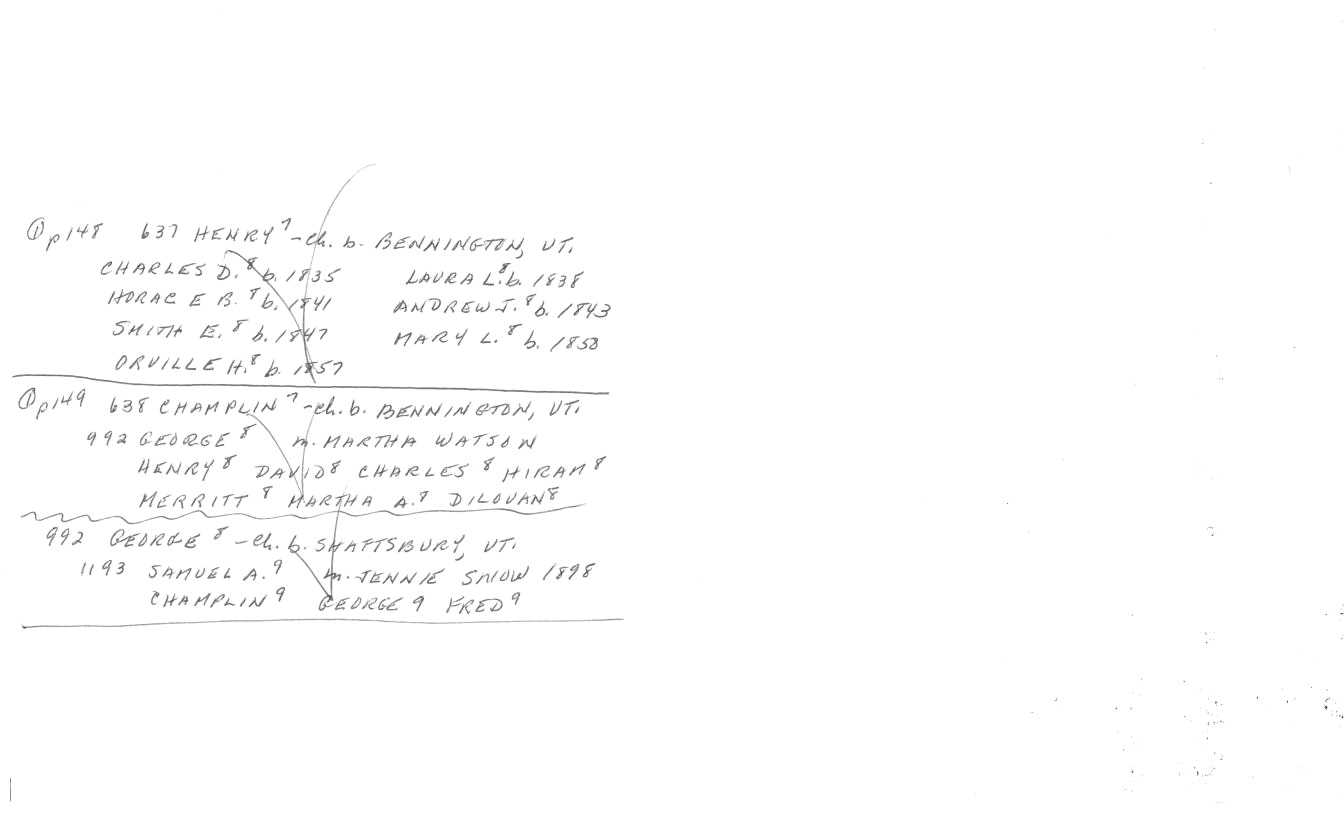 ① p148 637 HENRY⁷ - ch. b. BENNINGTON, VT.
CHARLES D.⁸ b. 1835 LAURA L.⁸ b. 1838
HORAC E B.⁸ b. 1841 ANDREW J.⁸ b. 1843
SMITH E.⁸ b. 1847 MARY L.⁸ b. 1850
ORVILLE H.⁸ b. 1857
① p149 638 CHAMPLIN⁷ - ch. b. BENNINGTON, VT.
992 GEORGE⁸ m. MARTHA WATSON
HENRY⁸ DAVID⁸ CHARLES⁸ HIRAM⁸
MERRITT⁸ MARTHA A.⁸ DILOVAN⁸
992 GEORGE⁸ - ch. b. SHAFTSBURY, VT.
1193 SAMUEL A.⁹ m. JENNIE SNOW 1898
CHAMPLIN⁹ GEORGE⁹ FRED⁹